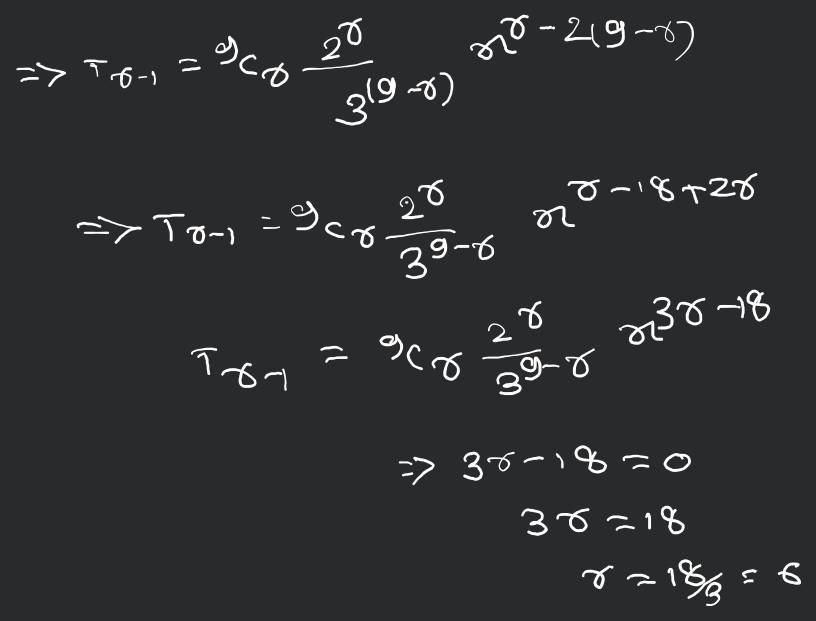 => T_{r-1} = ⁹C_r \frac{2^r}{3^{(9-r)}} x^{r-2(9-r)}
=> T_{r-1} = ⁹C_r \frac{2^r}{3^{9-r}} x^{r-18+2r}
T_{r-1} = ⁹C_r \frac{2^r}{3^{9-r}} x^{3r-18}
=> 3r-18=0
3r=18
r=18/3=6